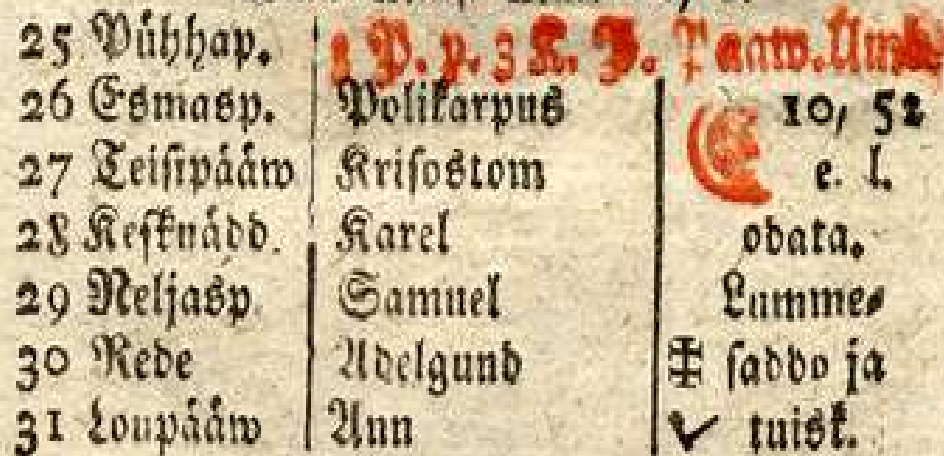 25 Pühhap. 3 P. p. 3 K. P. Paaw. Um
26 Esmasp. Polikarpus 10, 52
27 Teisipääw Krisostom e. l.
28 Kesknädd. Karel odata.
29 Neljasp. Samuel Lumme-
30 Rede Adelgund saddo ja
31 Loupääw Ann tuisk.